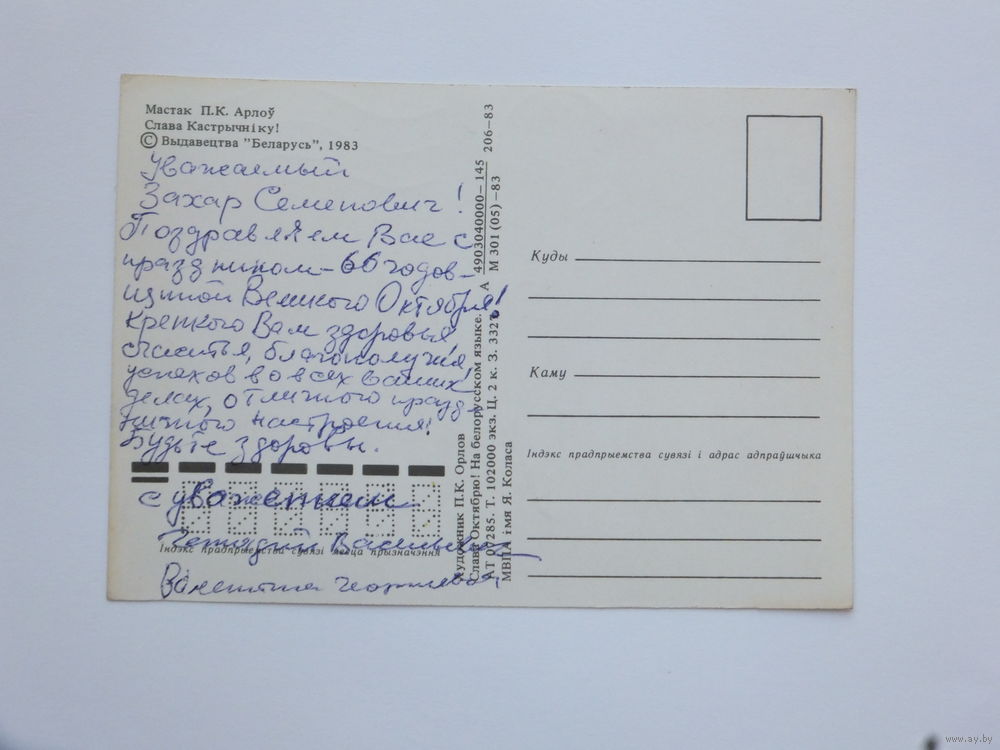 Мастак П.К. Арлоў
Слава Кастрычніку!
© Выдавецтва "Беларусь", 1983
Уважаемый
Захар Семенович!
Поздравляем Вас с
праздником - 66 годов-
щиной Великого Октября!
Крепкого Вам здоровья
счастья, благополучия,
успехов во всех ваших
делах, отличного празд-
ничного настроения!
Будьте здоровы.
с уважением
Геннадий
Валентина Георгиевна
Індэкс прадпрыемства сувязі месца прызначэння
Мастак П.К. Орлов
Слава Октябрю! На белорусском языке.
АТ 07285. Т. 102000 экз. Ц. 2 к. З. 3327
МВПА імя Я. Коласа
А 4903040000—145 206-83
М 301(05)—83
Куды
Каму
Індэкс прадпрыемства сувязі і адрас адпраўшчыка
www.ay.by